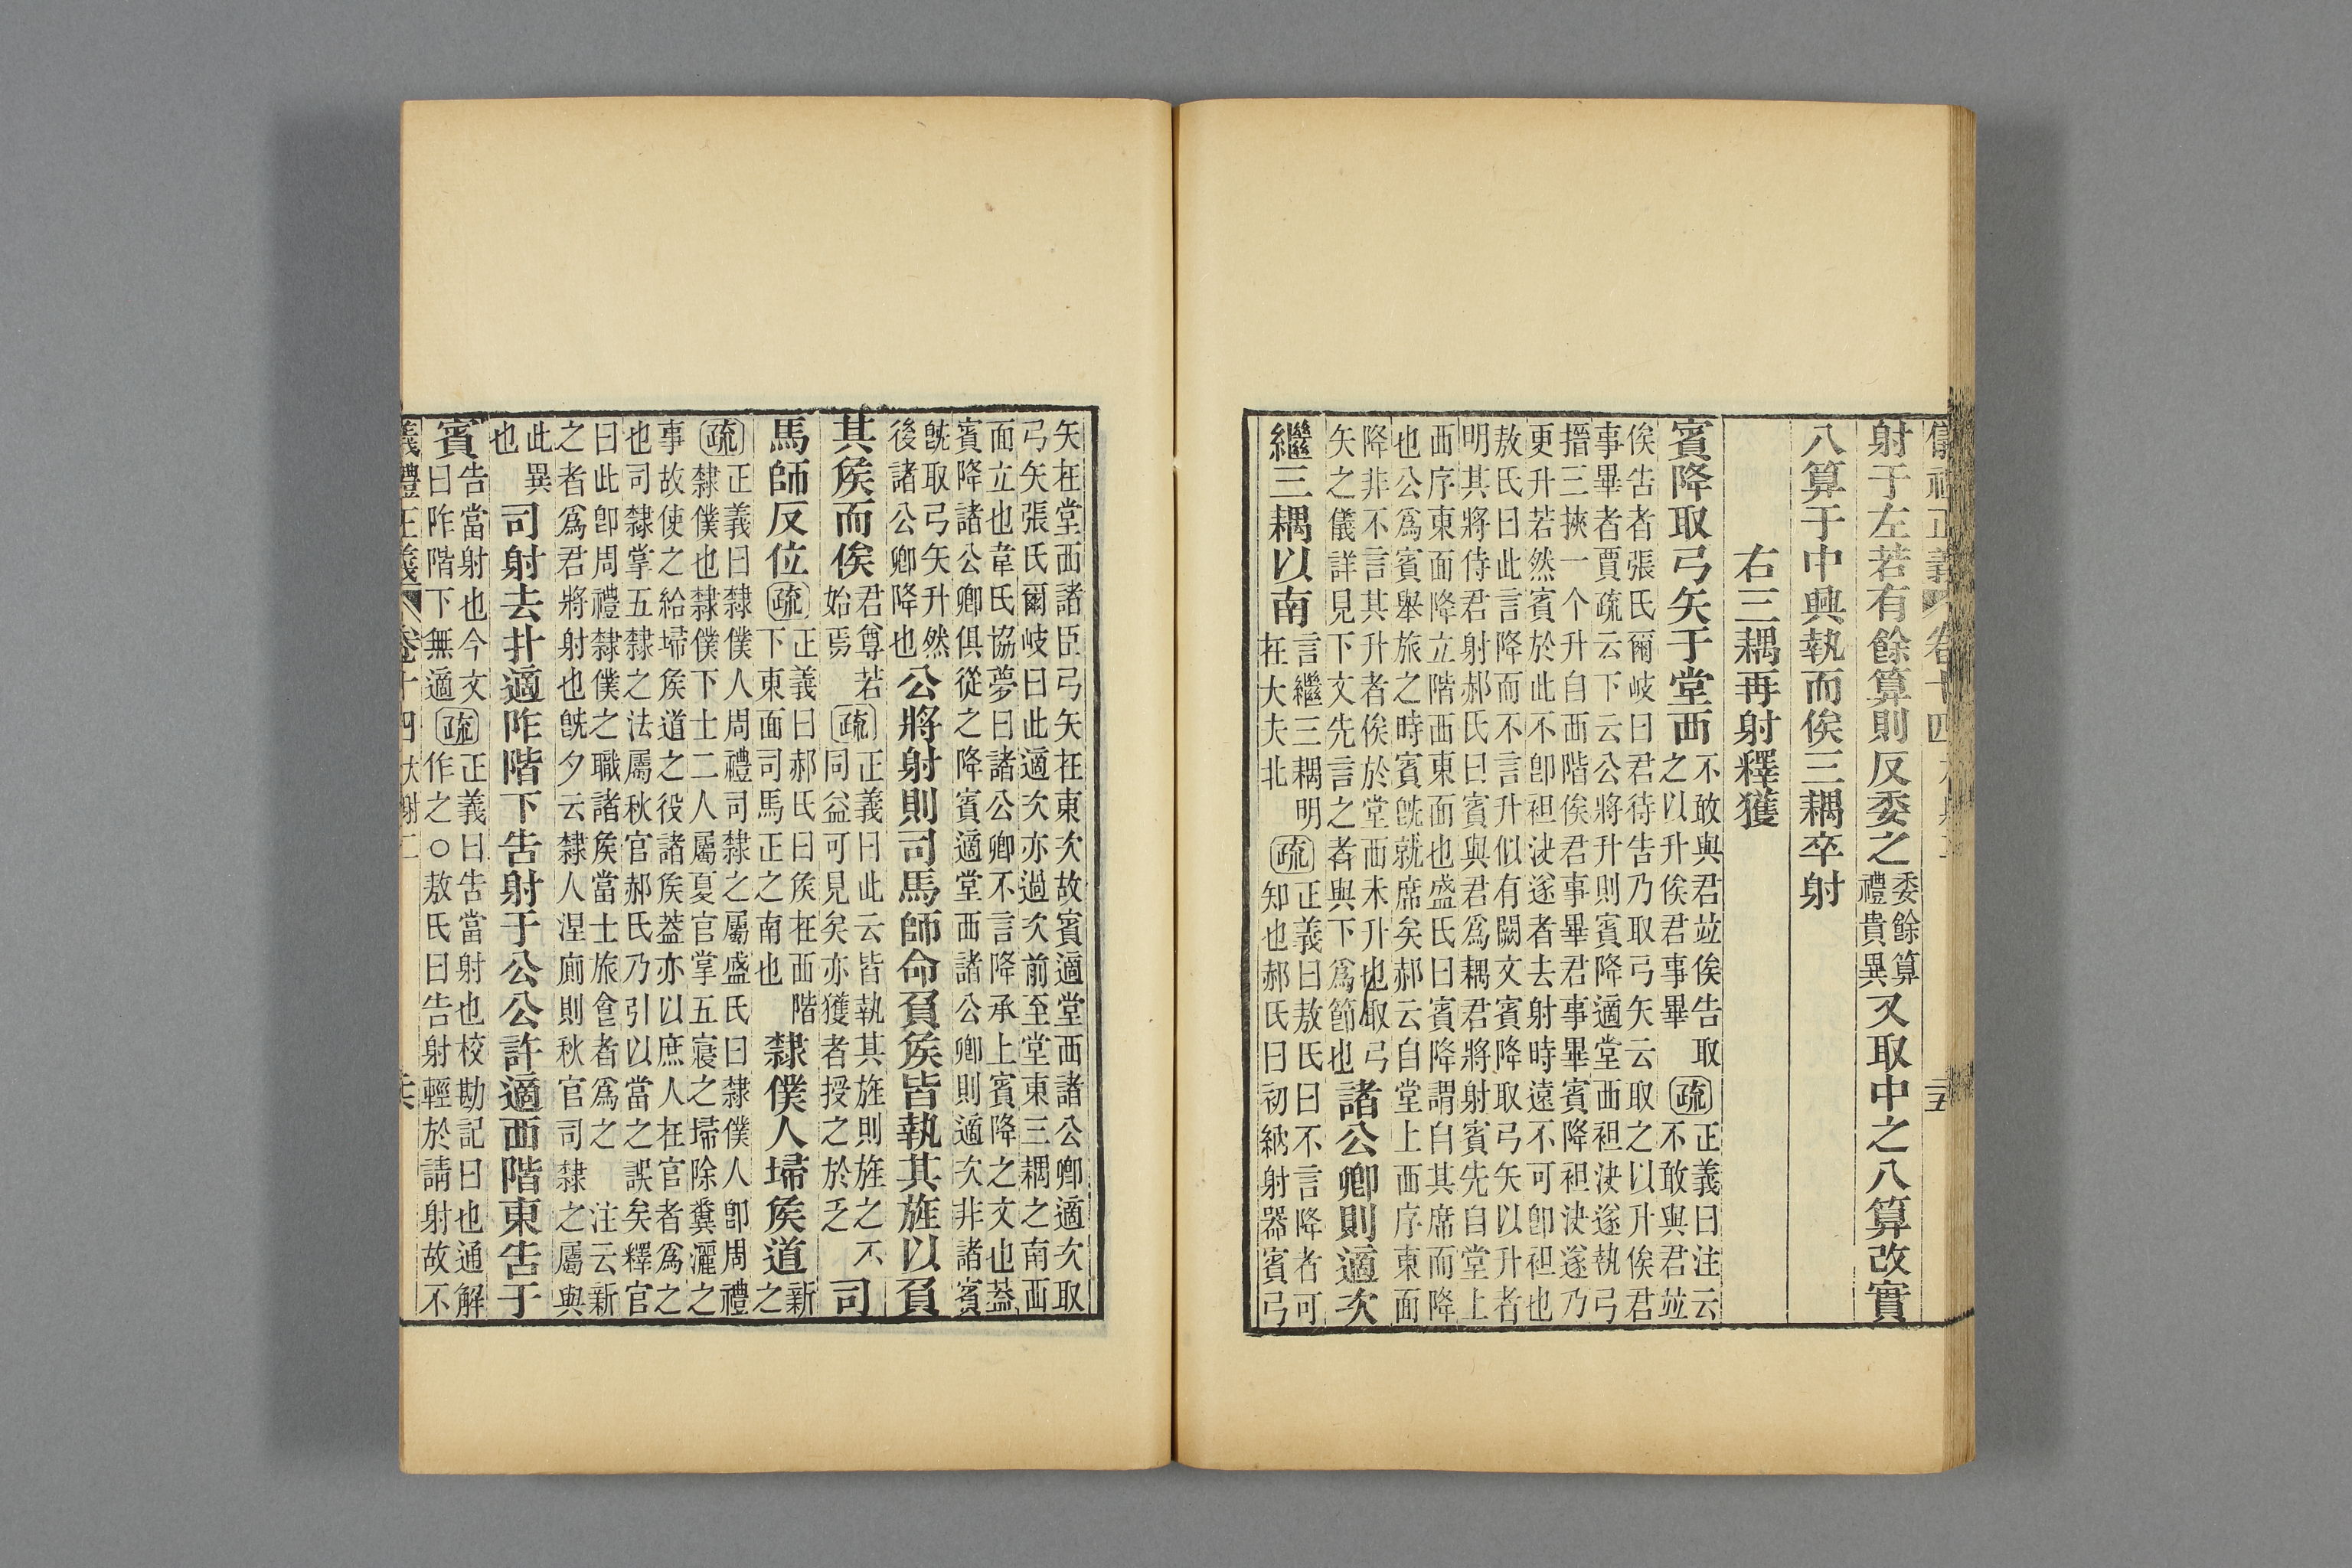 儀禮正義 卷十四 三五
射于左若有餘算則反委之
委餘算
禮貴異
又取中之八算改實
八算于中興執而俟三耦卒射
右三耦再射釋獲
賓降取弓矢于堂西
不敢與君竝俟告取
之以升俟君事畢
疏
正義曰注云
不敢與君竝
俟告者張氏爾岐曰君待告乃取弓矢云取之以升俟君
事畢者賈疏云下云公將升則賓降適堂西袒決遂執弓
搢三挾一个升自西階俟君事畢君事畢賓降袒決遂乃
更升若然賓於此不卽袒決遂者去射時遠不可卽袒也
敖氏曰此言降而不言升似有闕文賓降取弓矢以升者
明其將侍君射郝氏曰賓與君爲耦君將射賓先自堂上
西序東面降立階西東面也盛氏曰賓降謂自其席而降
也公爲賓舉旅之時賓旣就席矣郝云自堂上西序東面
降非不言其升者俟於堂西未升也取弓
矢之儀詳見下文先言之者與下爲節也
諸公卿則適次
繼三耦以南
言繼三耦明
在大夫北
疏
正義曰敖氏曰不言降者可
知也郝氏曰初納射器賓弓
矢在堂西諸臣弓矢在東次故賓適堂西諸公卿適次取
弓矢張氏爾岐曰此適次亦過次前至堂東三耦之南西
面立也韋氏協夢曰諸公卿不言降承上賓降之文也蓋
賓降諸公卿俱從之降賓適堂西諸公卿則適次非諸賓
旣取弓矢升然
後諸公卿降也
公將射則司馬師命負侯皆執其旌以負
其侯而俟
君尊若
始焉
疏
正義曰此云皆執其旌則旌之不
同益可見矣亦獲者授之於乏
司
馬師反位
疏
正義曰郝氏曰侯在西階
下東面司馬正之南也
隸僕人埽侯道
新
之
疏
正義曰隸僕人周禮司隸之屬盛氏曰隸僕人卽周禮
隸僕也隸僕下士二人屬夏官掌五寢之埽除糞灑之
事故使之給埽侯道之役諸侯蓋亦以庶人在官者爲之
也司隸掌五隸之法屬秋官郝氏乃引以當之誤矣釋官
曰此卽周禮隸僕之職諸侯當士旅食者爲之 注云新
之者爲君將射也旣夕云隸人涅廁則秋官司隸之屬與
此異
也
司射去扑適阼階下告射于公公許適西階東告于
賓
告當射也今文
曰阼階下無適
疏
正義曰告當射也校勘記曰也通解
作之○敖氏曰告射輕於請射故不
義禮正義 卷十四